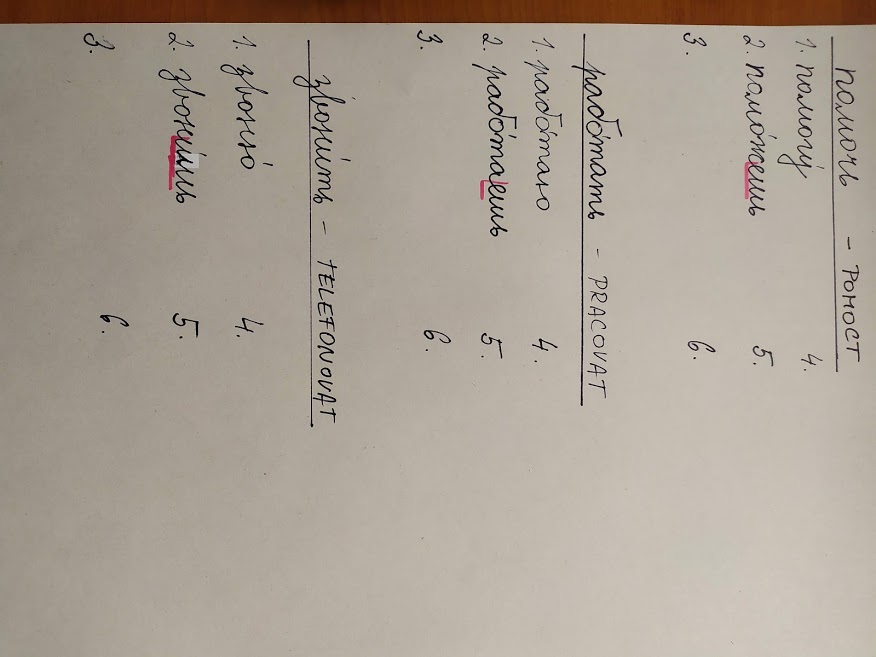 помочь - POMOCT
1. помогу́ 4.
2. помо́жешь 5.
3. 6.
рабо́тать - PRACOVAT
1. рабо́таю 4.
2. рабо́таешь 5.
3. 6.
звони́ть - TELEFONOVAT
1. звоню́ 4.
2. звони́шь 5.
3. 6.